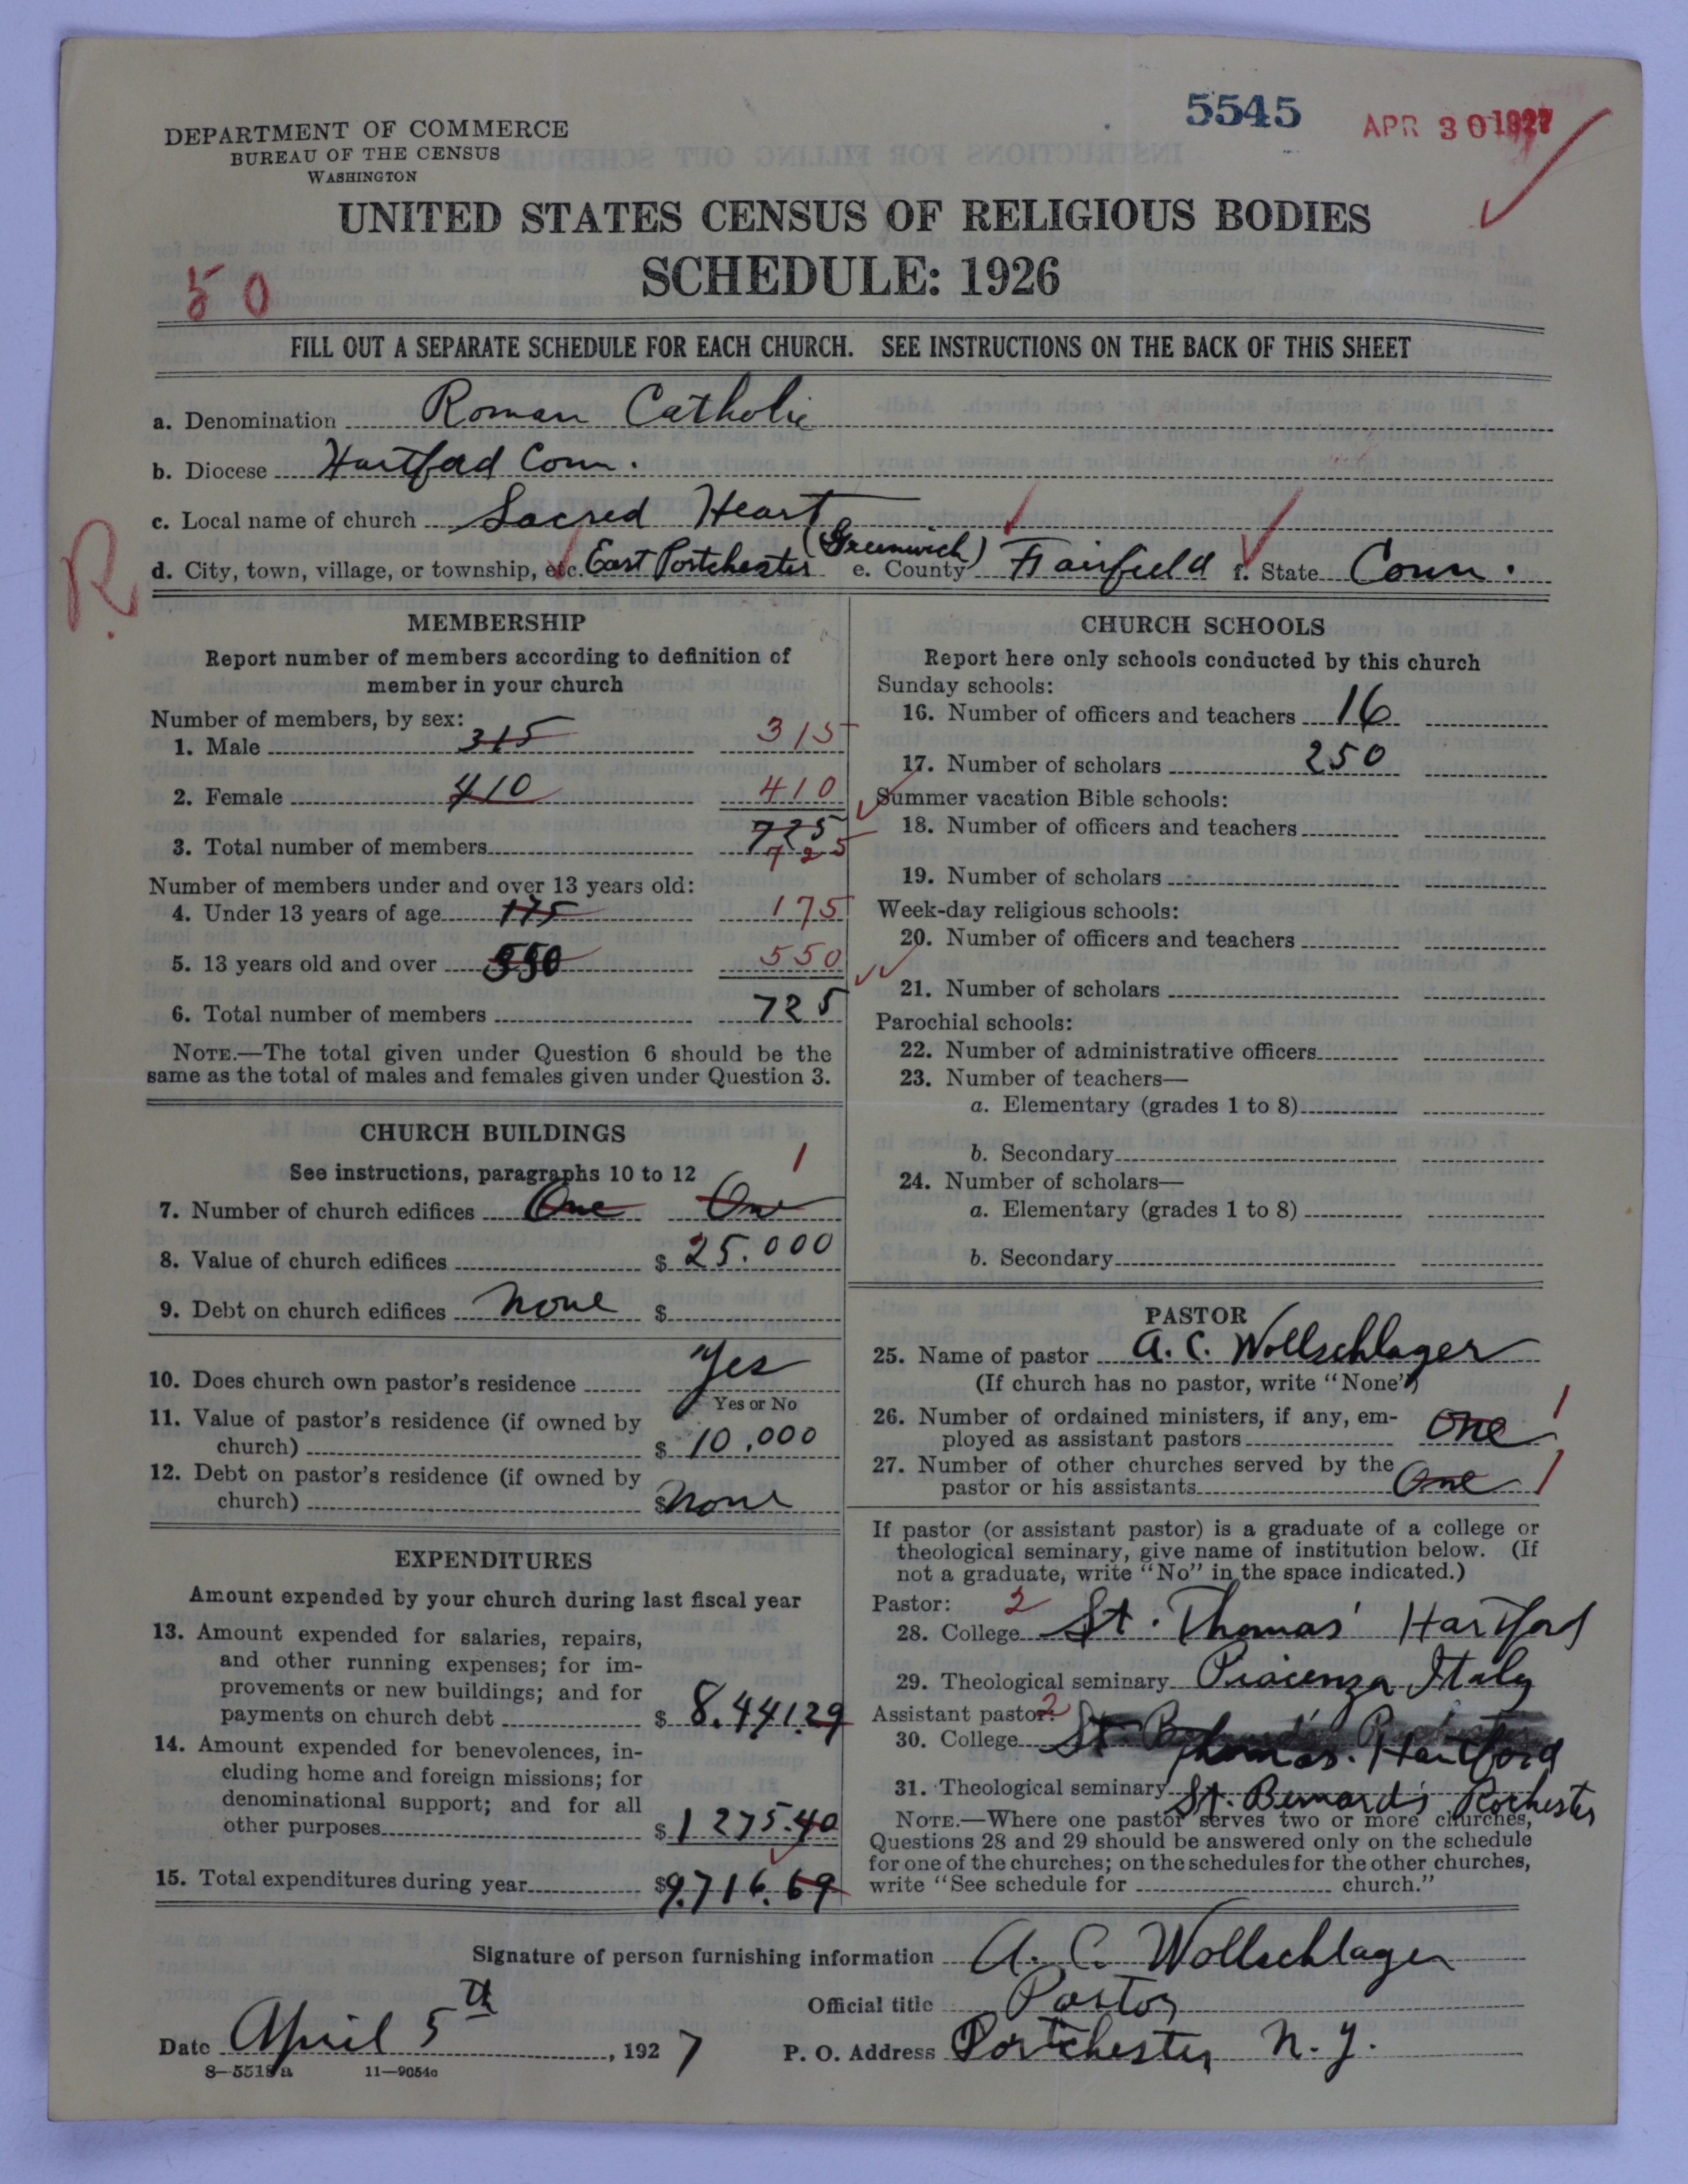 5545
APR 30 1927
DEPARTMENT OF COMMERCE
BUREAU OF THE CENSUS
WASHINGTON
UNITED STATES CENSUS OF RELIGIOUS BODIES
SCHEDULE: 1926
50
FILL OUT A SEPARATE SCHEDULE FOR EACH CHURCH. SEE INSTRUCTIONS ON THE BACK OF THIS SHEET
a. Denomination Roman Catholic
b. Diocese Hartford Conn.
c. Local name of church Sacred Heart
R.
d. City, town, village, or township, etc. East Portchester (Greenwich) e. County Fairfield f. State Conn.
MEMBERSHIP
Report number of members according to definition of
member in your church
Number of members, by sex:
1. Male 315 315
2. Female 410 410
3. Total number of members 725
725
Number of members under and over 13 years old:
4. Under 13 years of age 175 175
5. 13 years old and over 550 550
6. Total number of members 725
NOTE.—The total given under Question 6 should be the
same as the total of males and females given under Question 3.
CHURCH BUILDINGS
See instructions, paragraphs 10 to 12 1
7. Number of church edifices One One
8. Value of church edifices $ 25.000
9. Debt on church edifices None $
10. Does church own pastor's residence Yes
Yes or No
11. Value of pastor's residence (if owned by
church) $ 10.000
12. Debt on pastor's residence (if owned by
church) $ None
EXPENDITURES
Amount expended by your church during last fiscal year
13. Amount expended for salaries, repairs,
and other running expenses; for im-
provements or new buildings; and for
payments on church debt $ 8.441.29
14. Amount expended for benevolences, in-
cluding home and foreign missions; for
denominational support; and for all
other purposes $ 1275.40
15. Total expenditures during year $9.716.69
CHURCH SCHOOLS
Report here only schools conducted by this church
Sunday schools:
16. Number of officers and teachers 16
17. Number of scholars 250
Summer vacation Bible schools:
18. Number of officers and teachers
19. Number of scholars
Week-day religious schools:
20. Number of officers and teachers
21. Number of scholars
Parochial schools:
22. Number of administrative officers
23. Number of teachers—
a. Elementary (grades 1 to 8)
b. Secondary
24. Number of scholars—
a. Elementary (grades 1 to 8)
b. Secondary
PASTOR
25. Name of pastor A. C. Wollschlager
(If church has no pastor, write "None")
26. Number of ordained ministers, if any, em-
ployed as assistant pastors One 1
27. Number of other churches served by the
pastor or his assistants One 1
If pastor (or assistant pastor) is a graduate of a college or
theological seminary, give name of institution below. (If
not a graduate, write "No" in the space indicated.)
Pastor: 2
28. College St. Thomas' Hartford
29. Theological seminary Piacenza Italy
Assistant pastor: 2
30. College St.
Thomas. Hartford
31. Theological seminary St. Bernard's Rochester
NOTE.—Where one pastor serves two or more churches,
Questions 28 and 29 should be answered only on the schedule
for one of the churches; on the schedules for the other churches,
write "See schedule for church."
Signature of person furnishing information A. C. Wollschlager
Official title Pastor
Date April 5th, 1927 P. O. Address Portchester N. Y.
8—5518a 11—9054c